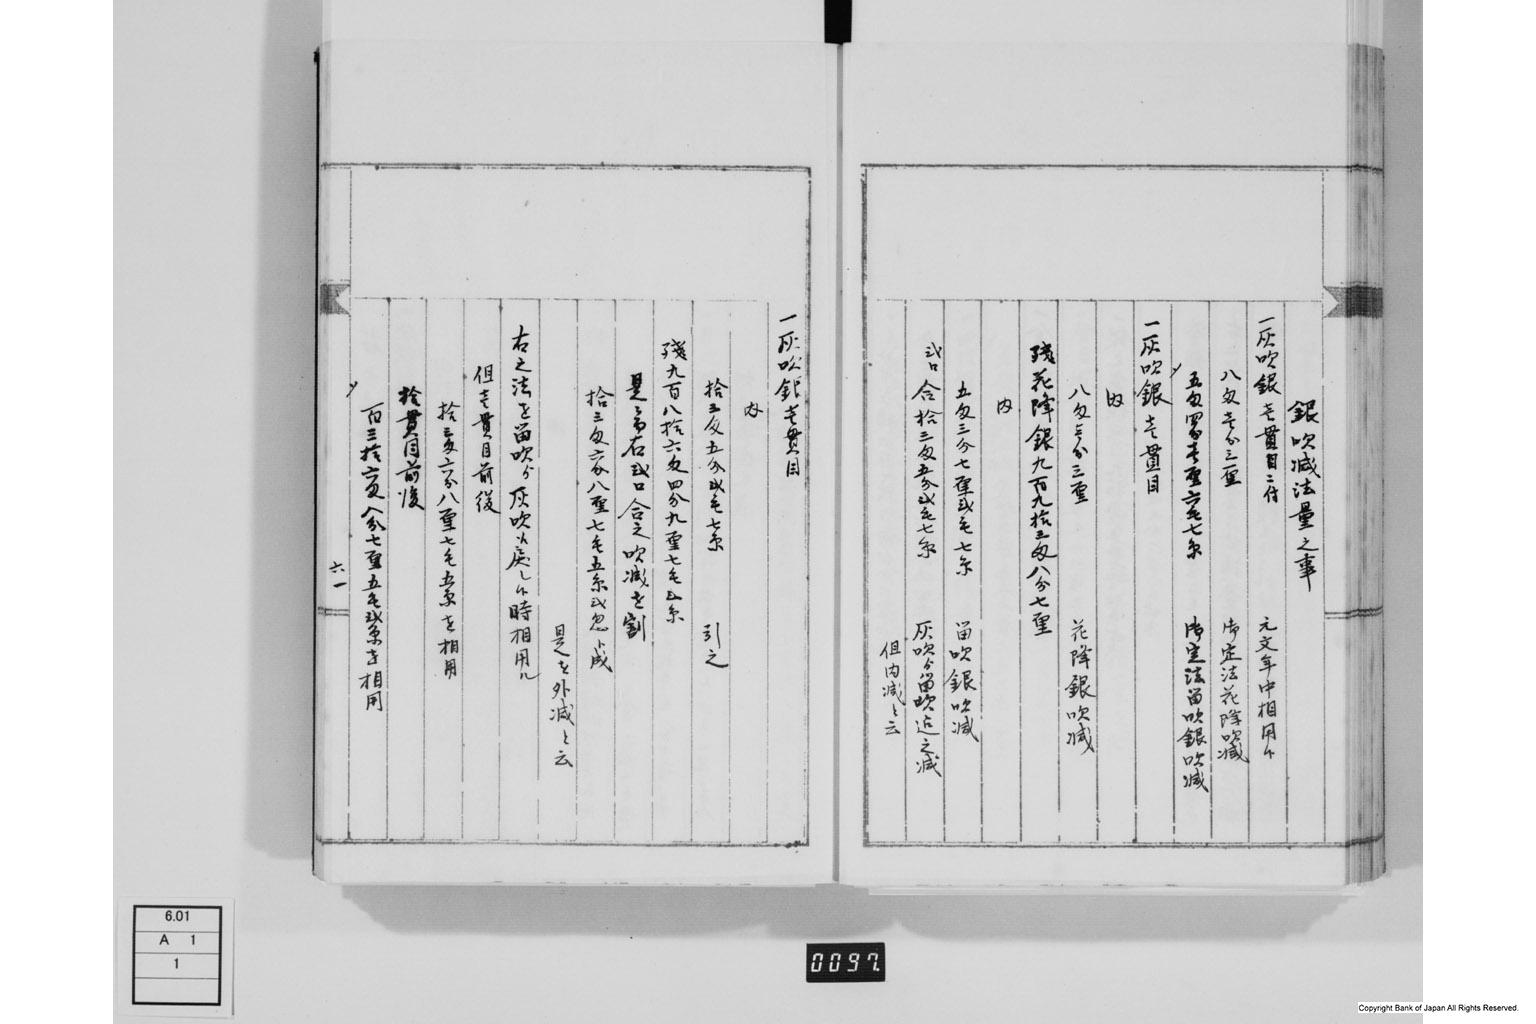 銀吹減法量之事
一灰吹銀壱貫目ニ付 元文年中相用候
八匁壱分三厘 御定法花降吹減
〆五匁四分壱厘六毛七糸 御定法留吹銀吹減
一灰吹銀壱貫目
内
八匁壱分三厘 花降銀吹減
残花降銀九百九拾壱匁八分七厘
内
五匁三分七厘弐毛七糸 留吹銀吹減
弐口合拾三匁五分弐毛七糸 灰吹ゟ留吹迄之減
但内減と云
一灰吹銀壱貫目
内
拾三匁五分弐毛七糸 引之
残九百八拾六匁四分九厘七毛三糸
是ニ而右弐口合之吹減を割
拾三匁六分八厘七毛五糸弐忽ト成
是を外減と云
右之法を留吹ゟ灰吹に戻し候時相用ル
但壱貫目前後
拾三匁六分八厘七毛五糸を相用
拾貫目前後
〆百三拾六匁八分七厘五毛弐糸を相用
六一
6.01
A 1
1
0097
Copyright Bank of Japan All Rights Reserved.